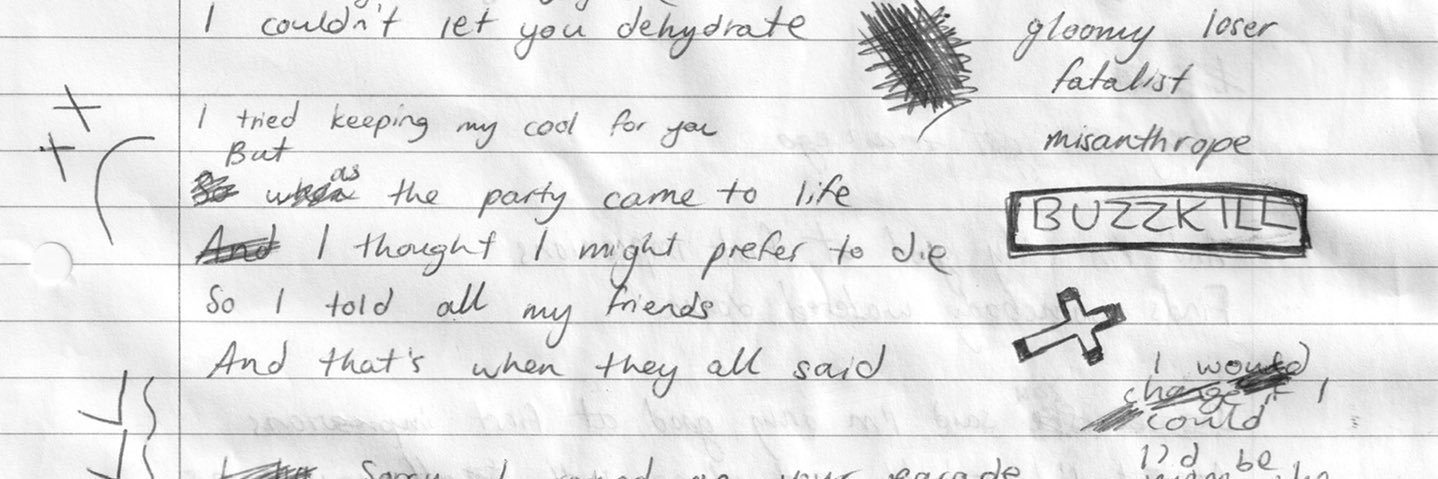 I couldn't let you dehydrate
I tried keeping my cool for you
But
So when as the party came to life
And I thought I might prefer to die
So I told all my friends
And that's when they all said
Sorry I rained on your parade
gloomy loser
fatalist
misanthrope
BUZZKILL
I would
change if I
could
I'd be